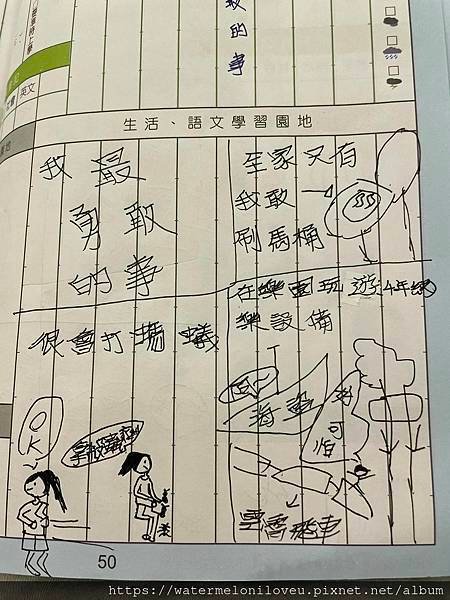 敢的事
英文
生活、語文學習園地
我最
勇敢
的事
全家只有
我敢
刷馬桶
在樂園玩遊
樂設備
4年級
很會打螞蟻
OK
海盜
好可怕
雲霄飛車
50
https://watermeloniloveu.pixnet.net/album